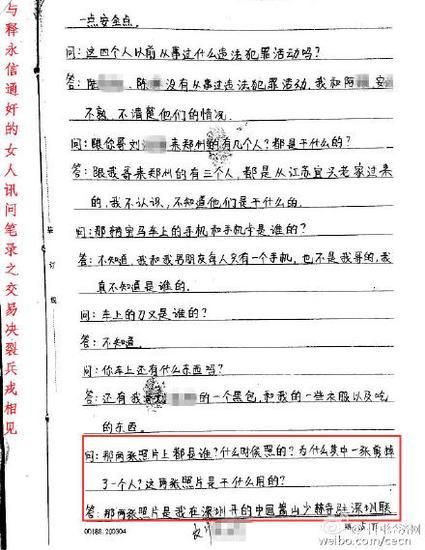 与释永信通奸的女人讯问笔录之交易决裂兵戎相见
一点安全点。
问：这四个人以前从事过什么违法犯罪活动吗？
答：陈 、陈 没有从事过违法犯罪活动，我和阿 、安
不熟，不清楚他们的情况。
问：跟你哥刘 来郑州的有几个人？都是干什么的？
答：跟我哥来郑州的有三个人，都是从江苏宜兴老家过来
的，我不认识，不知道他们是干什么的。
问：那辆宝马车上的手机和手机卡是谁的？
答：不知道，我和我男朋友每人只有一个手机，也不是我哥的，我
真不知道是谁的。
问：车上的刀又是谁的？
答：不知道。
问：你车上还有什么东西吗？
答：还有我 的一个黑包，和我的一些衣服以及吃
的东西。
问：那两张照片上都是谁？什么时侯照的？为什么其中一张剪掉
了一个人？这两张照片是干什么用的？
答：那两张照片是我在深圳开的中国嵩山少林寺驻深圳联
00188.200304
第 页
@中国经济网
weibo.com/cecn
装订线